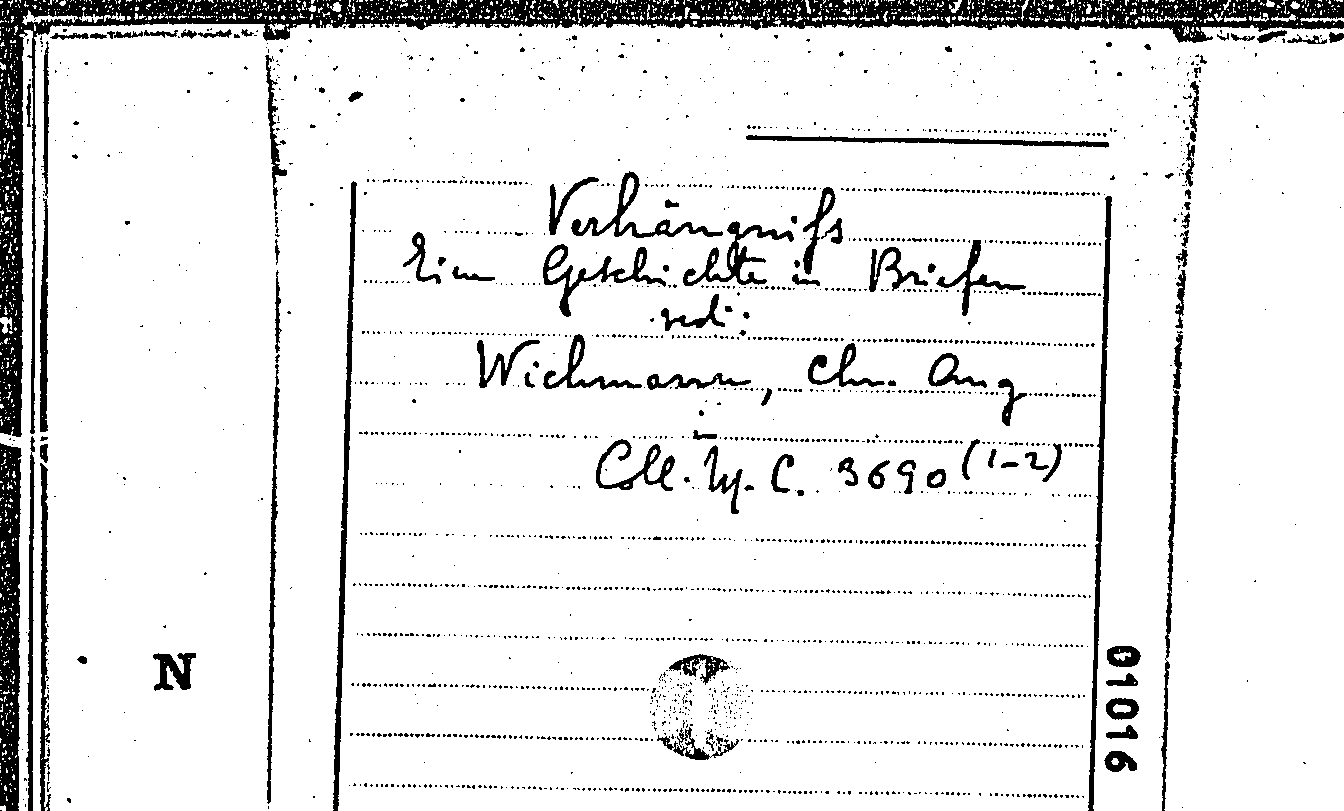 Verhängniſs
Eine Geschichte in Briefen
redi:
Wichmann, Chr. Aug
Coll. M. C. 3690 (1-2)
N
01016